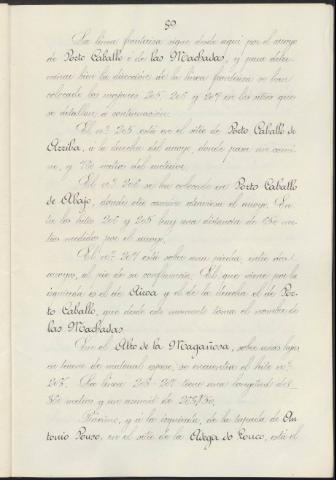 59
La línea fronteriza sigue desde aquí por el arroyo
de Porto Caballo ó de las Machadas, y para deter-
minar bien la dirección de la línea fronteriza se han
colocado los mojones 205, 206 y 207 en los sitios que
se detallan á continuación.
El nº 205 está en el sitio de Porto Caballo de
Arriba, á la derecha del arroyo, donde pasa un cami-
no, y metros del anterior.
El nº 206 se ha colocado en Porto Caballo
de Abajo, donde otro camino atraviesa el arroyo. En-
tre los hitos 206 y 205 hay una distancia de me-
tros medidos por el arroyo.
El nº 207 está sobre una piedra, entre dos
arroyos, al pie de su confluencia. El que viene por la
izquierda es el de y el de la derecha el de Por-
to Caballo, que desde este momento toma el nombre de
las Machadas.
En el Alto de la Magañosa, sobre unas lajas
en terreno de matorral espeso, se encuentra el hito nº
208. La línea 208-207 tiene una longitud de
metros y un azimut de
Próximo, y á la izquierda, de la tapada de An-
tonio Pouso, en el sitio de la Adega do Pouco, está el